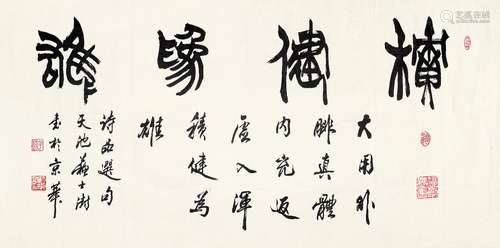 積健為雄
大用外
腓真體
內充返
虛入渾
積健為
雄
詩品選句
天池蘇士澍
書於京華
艺狐在线